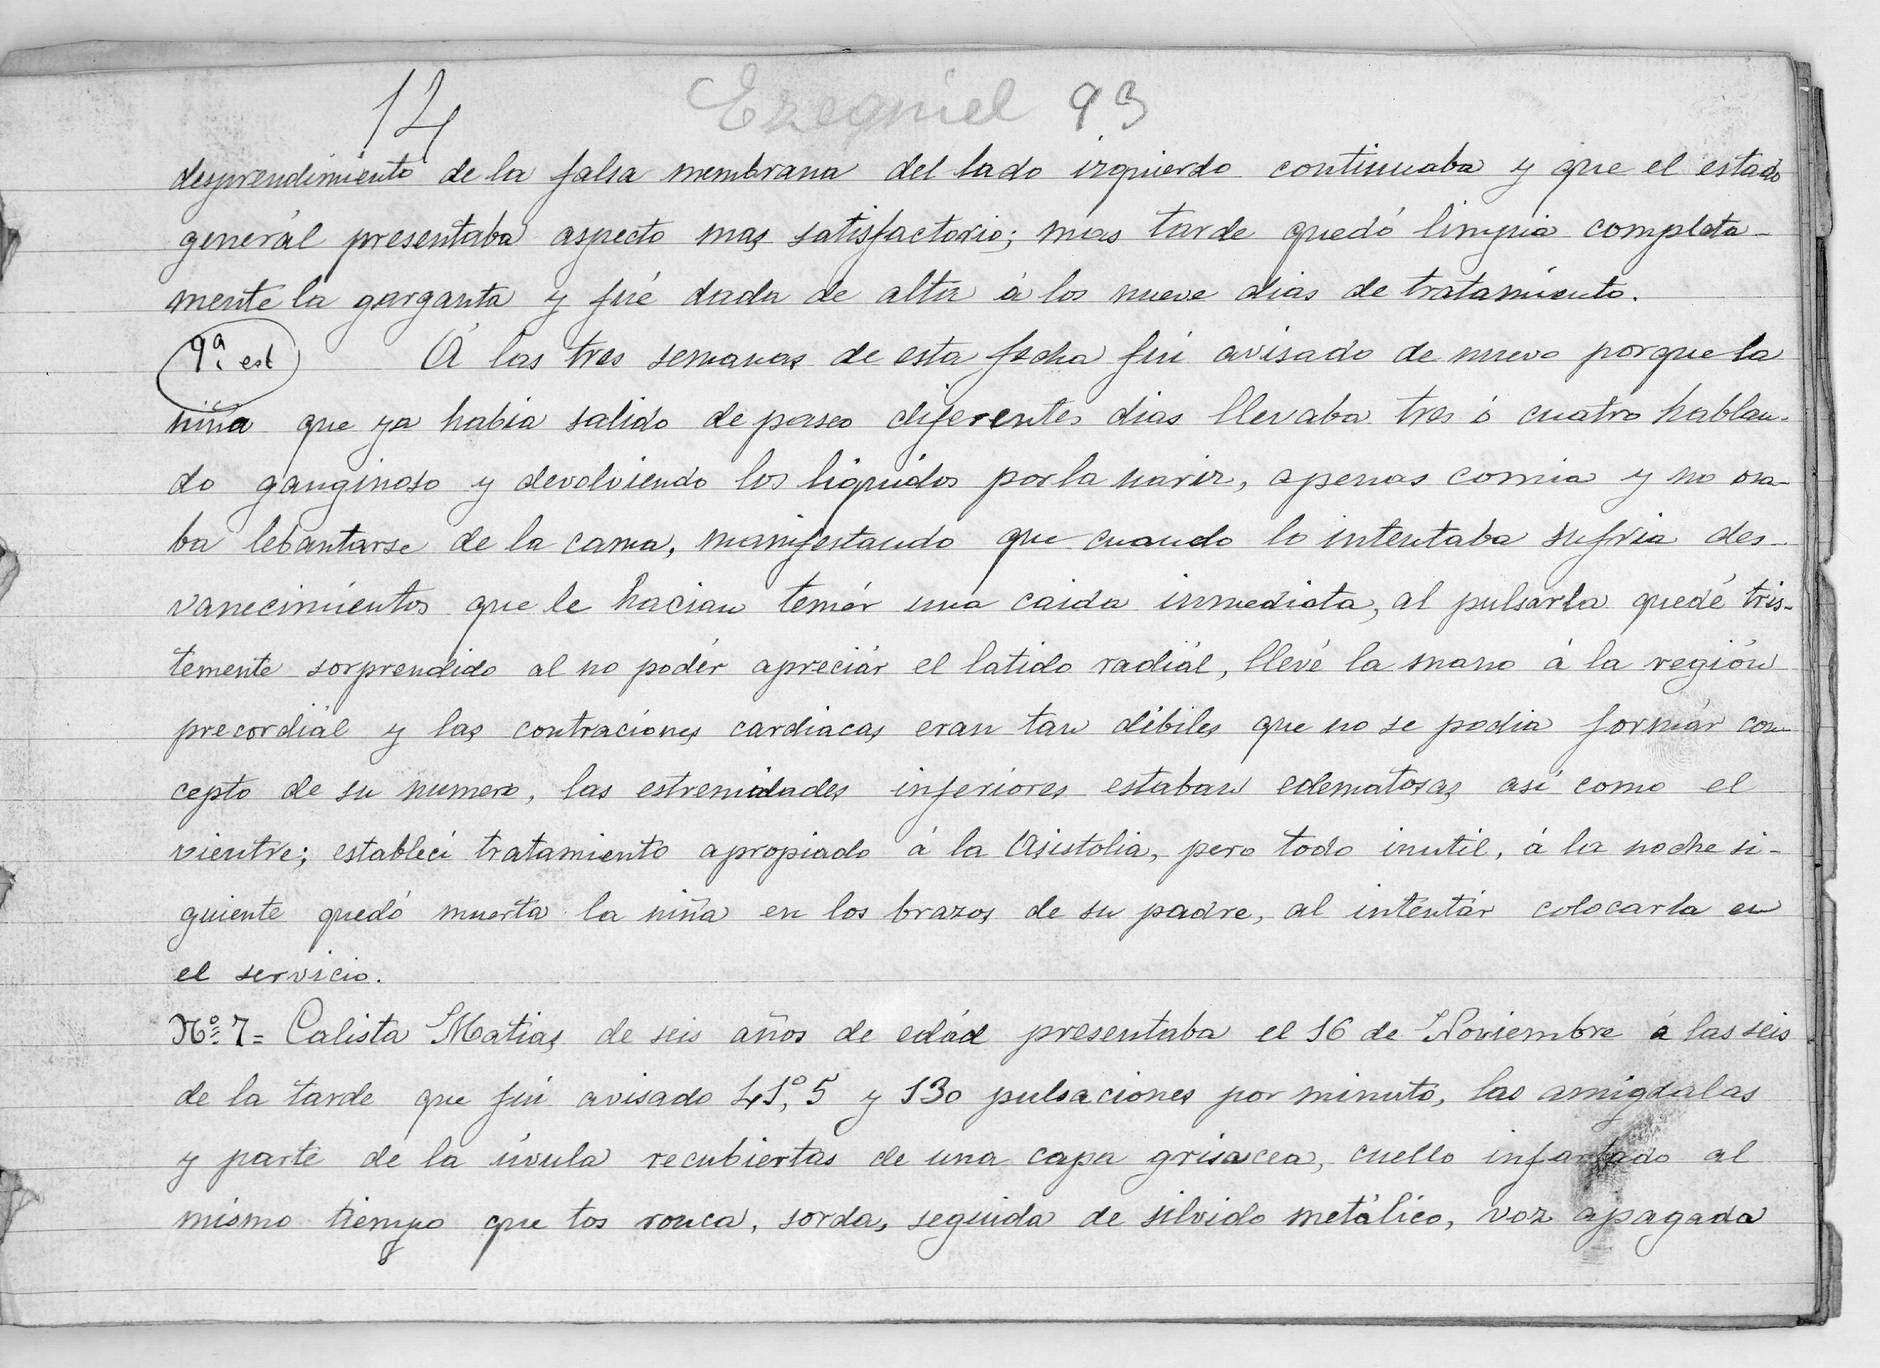 14 Ezequiel 93
desprendimiento de la falsa membrana del lado izquierdo continuaba y que el estado
generál presentaba aspecto mas satisfactorio; mas tarde quedó limpia completa-
mente la garganta y fué dada de alta á los nueve dias de tratamiento.
9ª est Á las tres semanas de esta fecha fui avisado de nuevo porque la
niña que ya habia salido de paseo diferentes dias llevaba tres ó cuatro hablan-
do ganginoso y devolviendo los liquidos por la nariz, apenas comia y no osa-
ba lebantarse de la cama, manifestando que cuando lo intentaba sufria des-
vanecimientos que le hacian temér una caida inmediata, al pulsarla quedé tris-
temente sorprendido al no podér apreciár el latido radiál, llevé la mano á la región
precordiál y las contraciones cardiacas eran tan débiles que no se podia formár con-
cepto de su numero, las estremidades inferiores estaban edematosas asi como el
vientre; establecí tratamiento apropiado á la Asistolia, pero todo inutil, á la noche si-
guiente quedó muerta la niña en los brazos de su padre, al intentár colocarla en
el servicio.
Nº 7= Calista Matias de seis años de edád presentaba el 16 de Noviembre á las seis
de la tarde que fui avisado 41º,5 y 130 pulsaciones por minuto, las amigdalas
y parte de la úvula recubiertas de una capa grisacea, cuello infartado al
mismo tiempo que tos ronca, sorda, seguida de silvido metálico, voz apagada